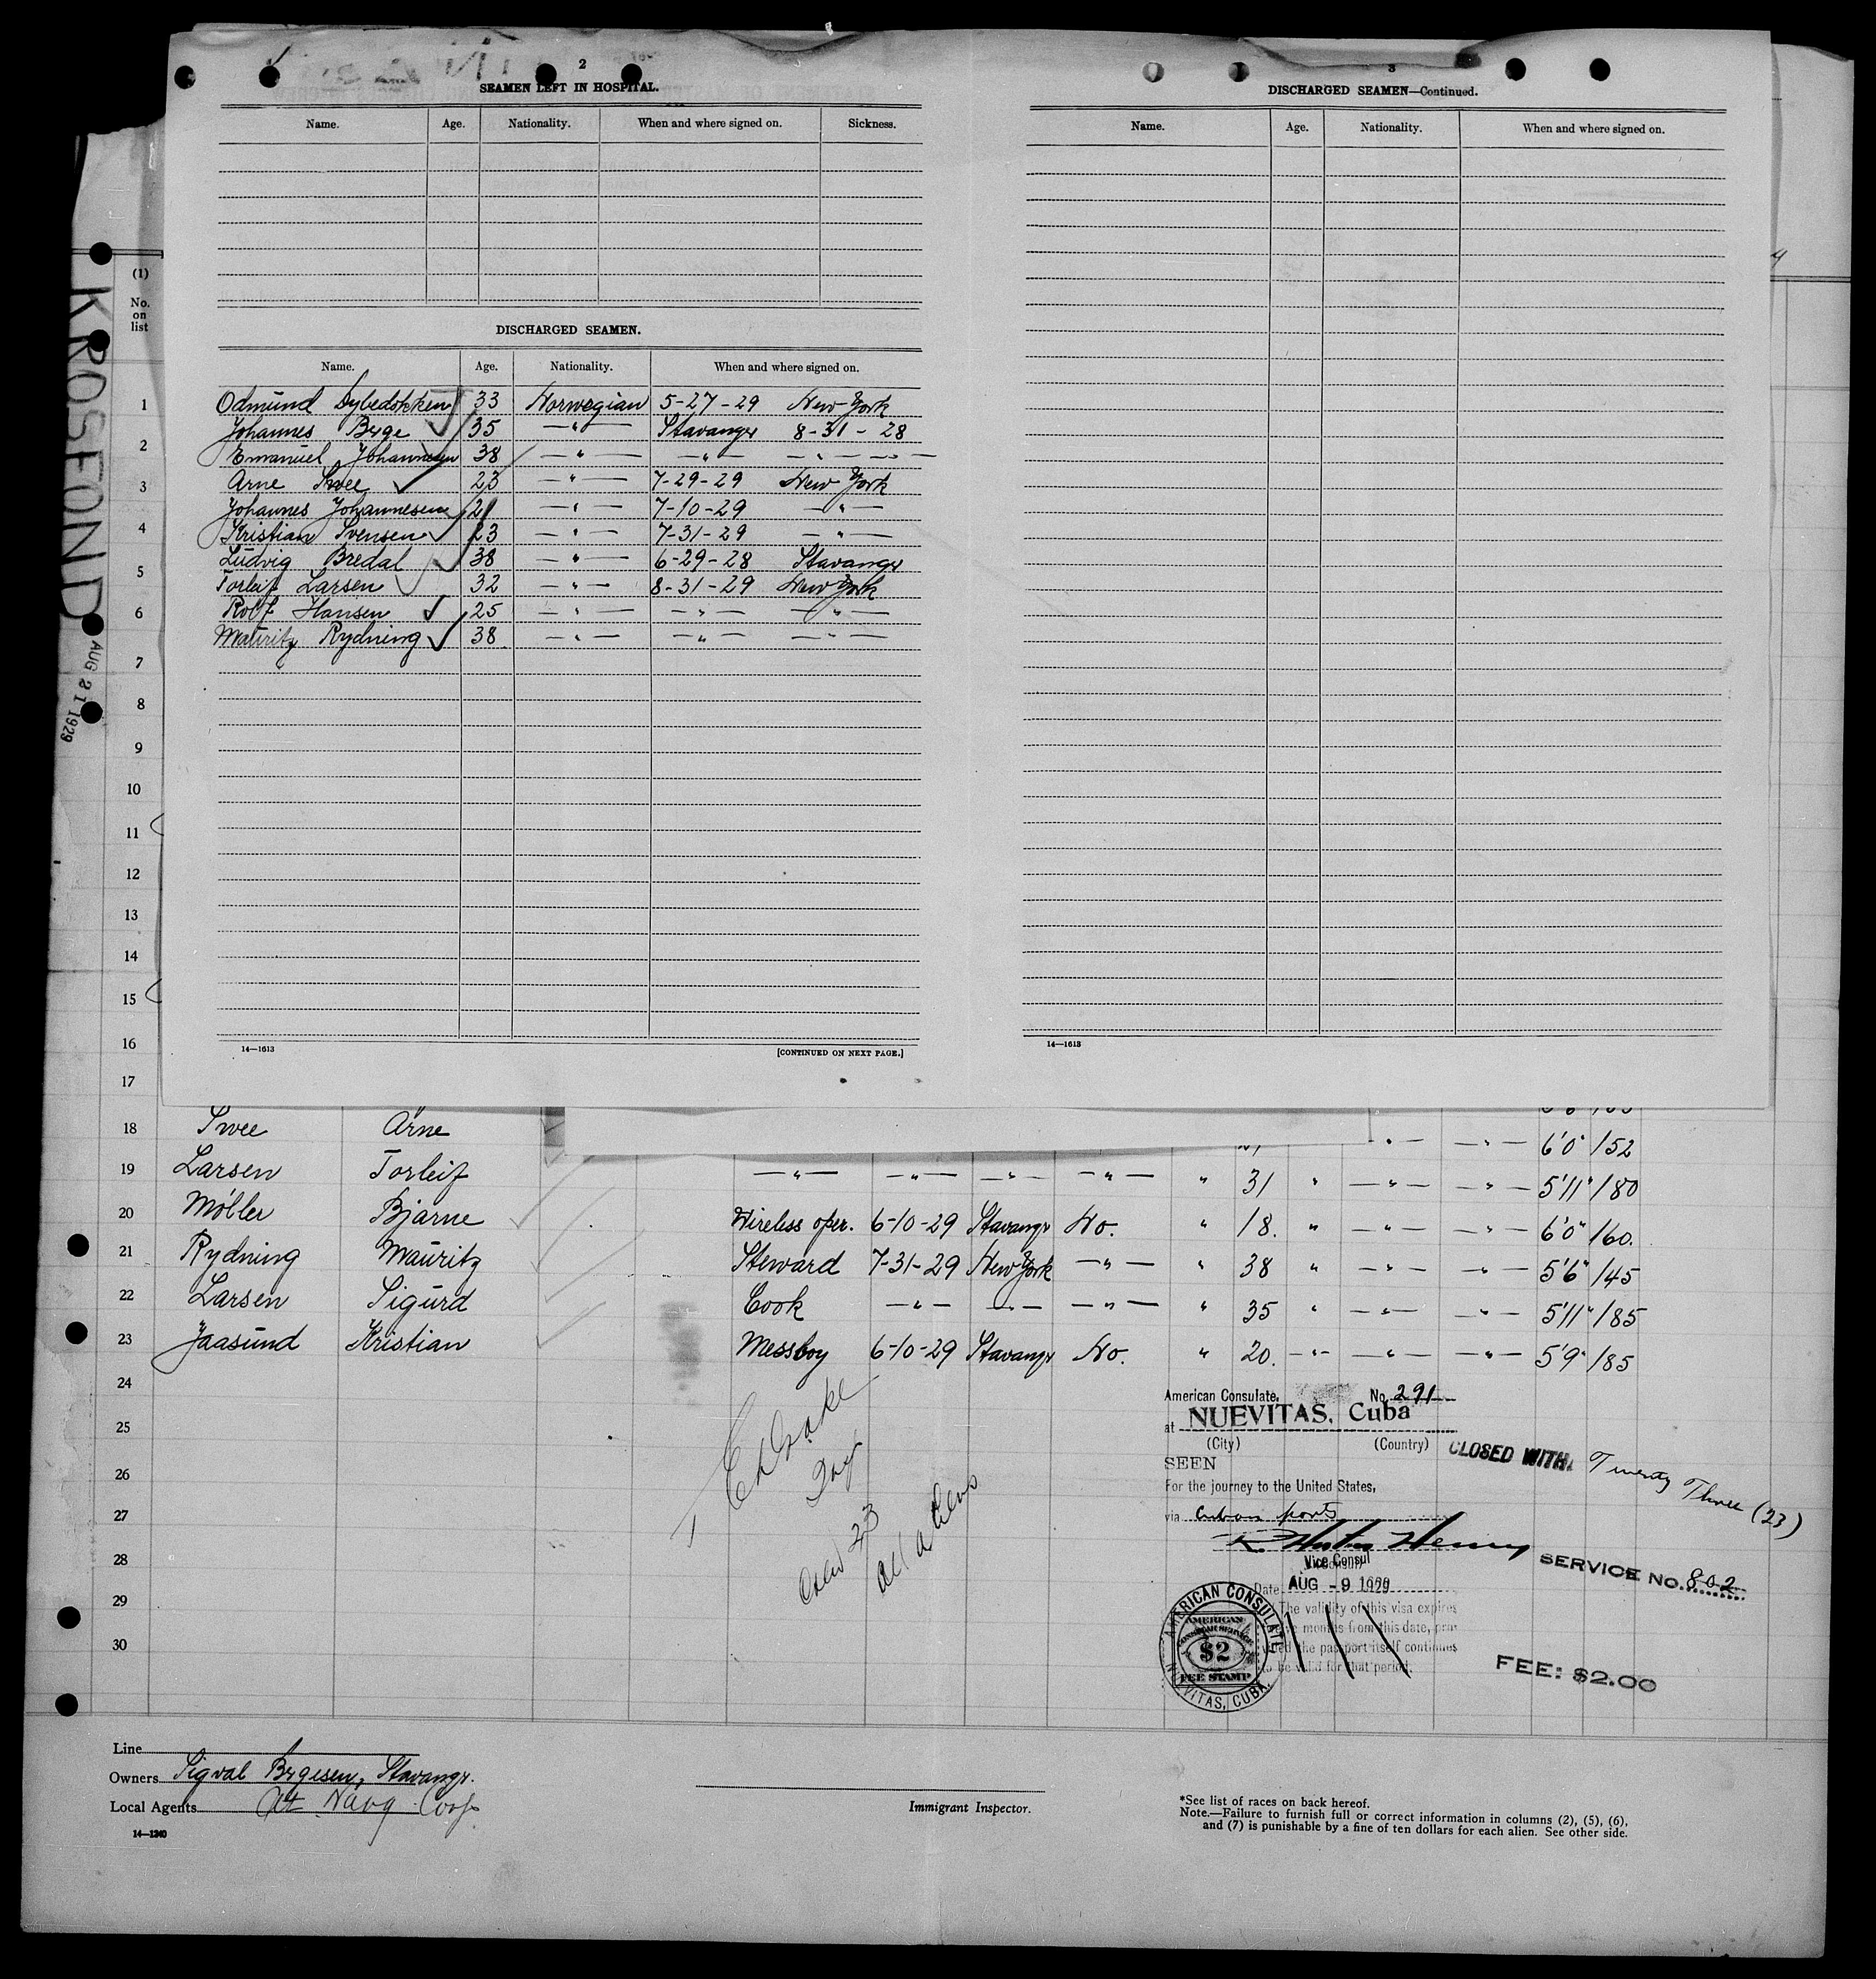 2
SEAMEN LEFT IN HOSPITAL.
Name. Age. Nationality. When and where signed on. Sickness.
DISCHARGED SEAMEN.
Name. Age. Nationality. When and where signed on.
Odmund Dybedokken 33 Norwegian 5-27-29 New York
Johannes Berge 35 —"— Stavanger 8-31-28
Emanuel Johannesen 38 —"— —"— —"—
Arne Swee 23 —"— 7-29-29 New York
Johannes Johannesen 21 —"— 7-10-29 —"—
Kristian Svensen 23 —"— 7-31-29 —"—
Ludvig Bredal 38 —"— 6-29-28 Stavanger
Torleif Larsen 32 —"— 8-31-29 New York
Rolf Hansen 25 —"— —"— —"—
Mauritz Rydning 38 —"— —"— —"—
14—1613 [CONTINUED ON NEXT PAGE.]
3
DISCHARGED SEAMEN—Continued.
Name. Age. Nationality. When and where signed on.
14—1613
KROSFOND
AUG 21 1929
(1)
No.
on
list
1
2
3
4
5
6
7
8
9
10
11
12
13
14
15
16
17
18 Swee Arne —"— —"— 6'0" 152
19 Larsen Torleif —"— —"— —"— —"— " 31 " —"— —"— 5'11" 180
20 Möller Bjarne Wireless oper. 6-10-29 Stavanger No. " 18. " —"— —"— 6'0" 160.
21 Rydning Mauritz Steward 7-31-29 New York —"— " 38 " —"— —"— 5'6" 145
22 Larsen Sigurd Cook —"— —"— —"— " 35 " —"— —"— 5'11" 185
23 Jaasund Kristian Messboy 6-10-29 Stavanger No. " 20. —"— —"— —"— 5'9" 185
24
25
26
27
28
29
30
Crew 23
all aliens
American Consulate, No. 291
at NUEVITAS, Cuba
(City) (Country)
SEEN
For the journey to the United States,
via Cuban ports
Henry
Vice Consul
Date AUG -9 1929
The validity of this visa expires
months from this date, pro-
vided the passport itself continues
to be valid for that period.
AMERICAN CONSULATE
NUEVITAS, CUBA.
AMERICAN
CONSULAR SERVICE
$2
FEE STAMP
CLOSED WITH Twenty Three (23)
SERVICE NO. 802
FEE: $2.00
Line
Owners Sigval Bergesen, Stavanger.
Local Agents At Navg Corp
14—1240
Immigrant Inspector.
*See list of races on back hereof.
Note.—Failure to furnish full or correct information in columns (2), (5), (6),
and (7) is punishable by a fine of ten dollars for each alien. See other side.